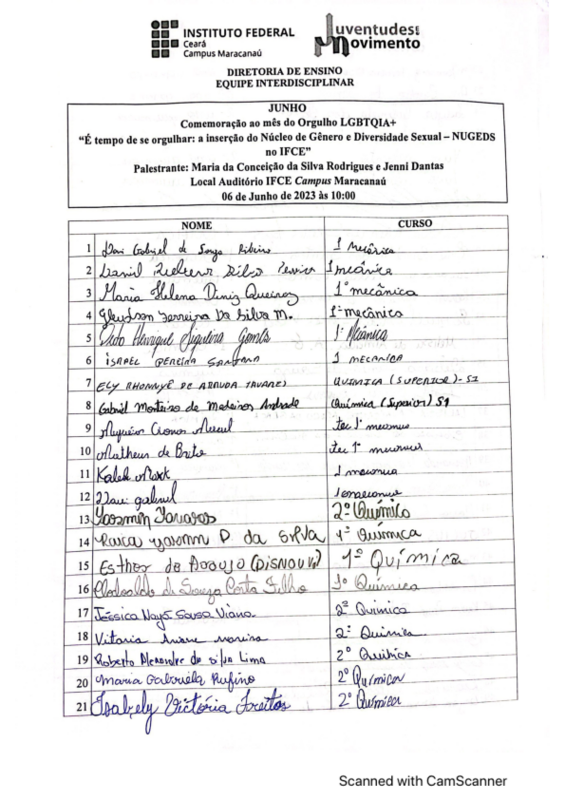 INSTITUTO FEDERAL
Ceará
Campus Maracanaú
Juventudes
Movimento
DIRETORIA DE ENSINO
EQUIPE INTERDISCIPLINAR
JUNHO
Comemoração ao mês do Orgulho LGBTQIA+
“É tempo de se orgulhar: a inserção do Núcleo de Gênero e Diversidade Sexual – NUGEDS
no IFCE”
Palestrante: Maria da Conceição da Silva Rodrigues e Jenni Dantas
Local Auditório IFCE Campus Maracanaú
06 de Junho de 2023 às 10:00
NOME CURSO
1 Davi Gabriel de Souza Ribeiro 1 Mecânica
2 Silva 1 mecânica
3 Maria Helena Diniz Queiroz 1º mecânica
4 Gleydson Ferreira Da Silva M. 1º mecânica
5 Henrique Siqueira Gomes 1º Mecânica
6 ISRAEL PEREIRA SANTANA 1 MECANICA
7 ELY RHONNYE DE ARRUDA TAVARES QUIMICA (SUPERIOR)-S1
8 Gabriel Monteiro de Medeiros Andrade Química (Superior) S1
9 tec 1º
10 Matheus de Brito tec 1º
11 Kaleb Mark 1
12 Davi gabriel
13 Yasmin Tavares 2º Químico
14 yasmin P da SILVA 1º Química
15 Esther de Araujo 1º Química
16 de Souza Costa Filho 1º Química
17 Jéssica Nayá Sousa Viana 2º Química
18 Vitória 2º Química
19 Roberto Alexandre da silva Lima 2º Química
20 Maria Gabriela Rufino 2º Química
21 Isabely Victória Freitas 2º Química
Scanned with CamScanner